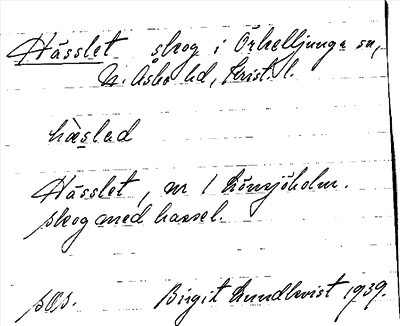 Hässlet skog i Örkelljunga sn,
N. Åsbo hd, Krist. l.
hàslad
Hässlet, nr 1 Lönsjöholm.
skog med hassel.
pers. Birgit Lundkvist 1939.